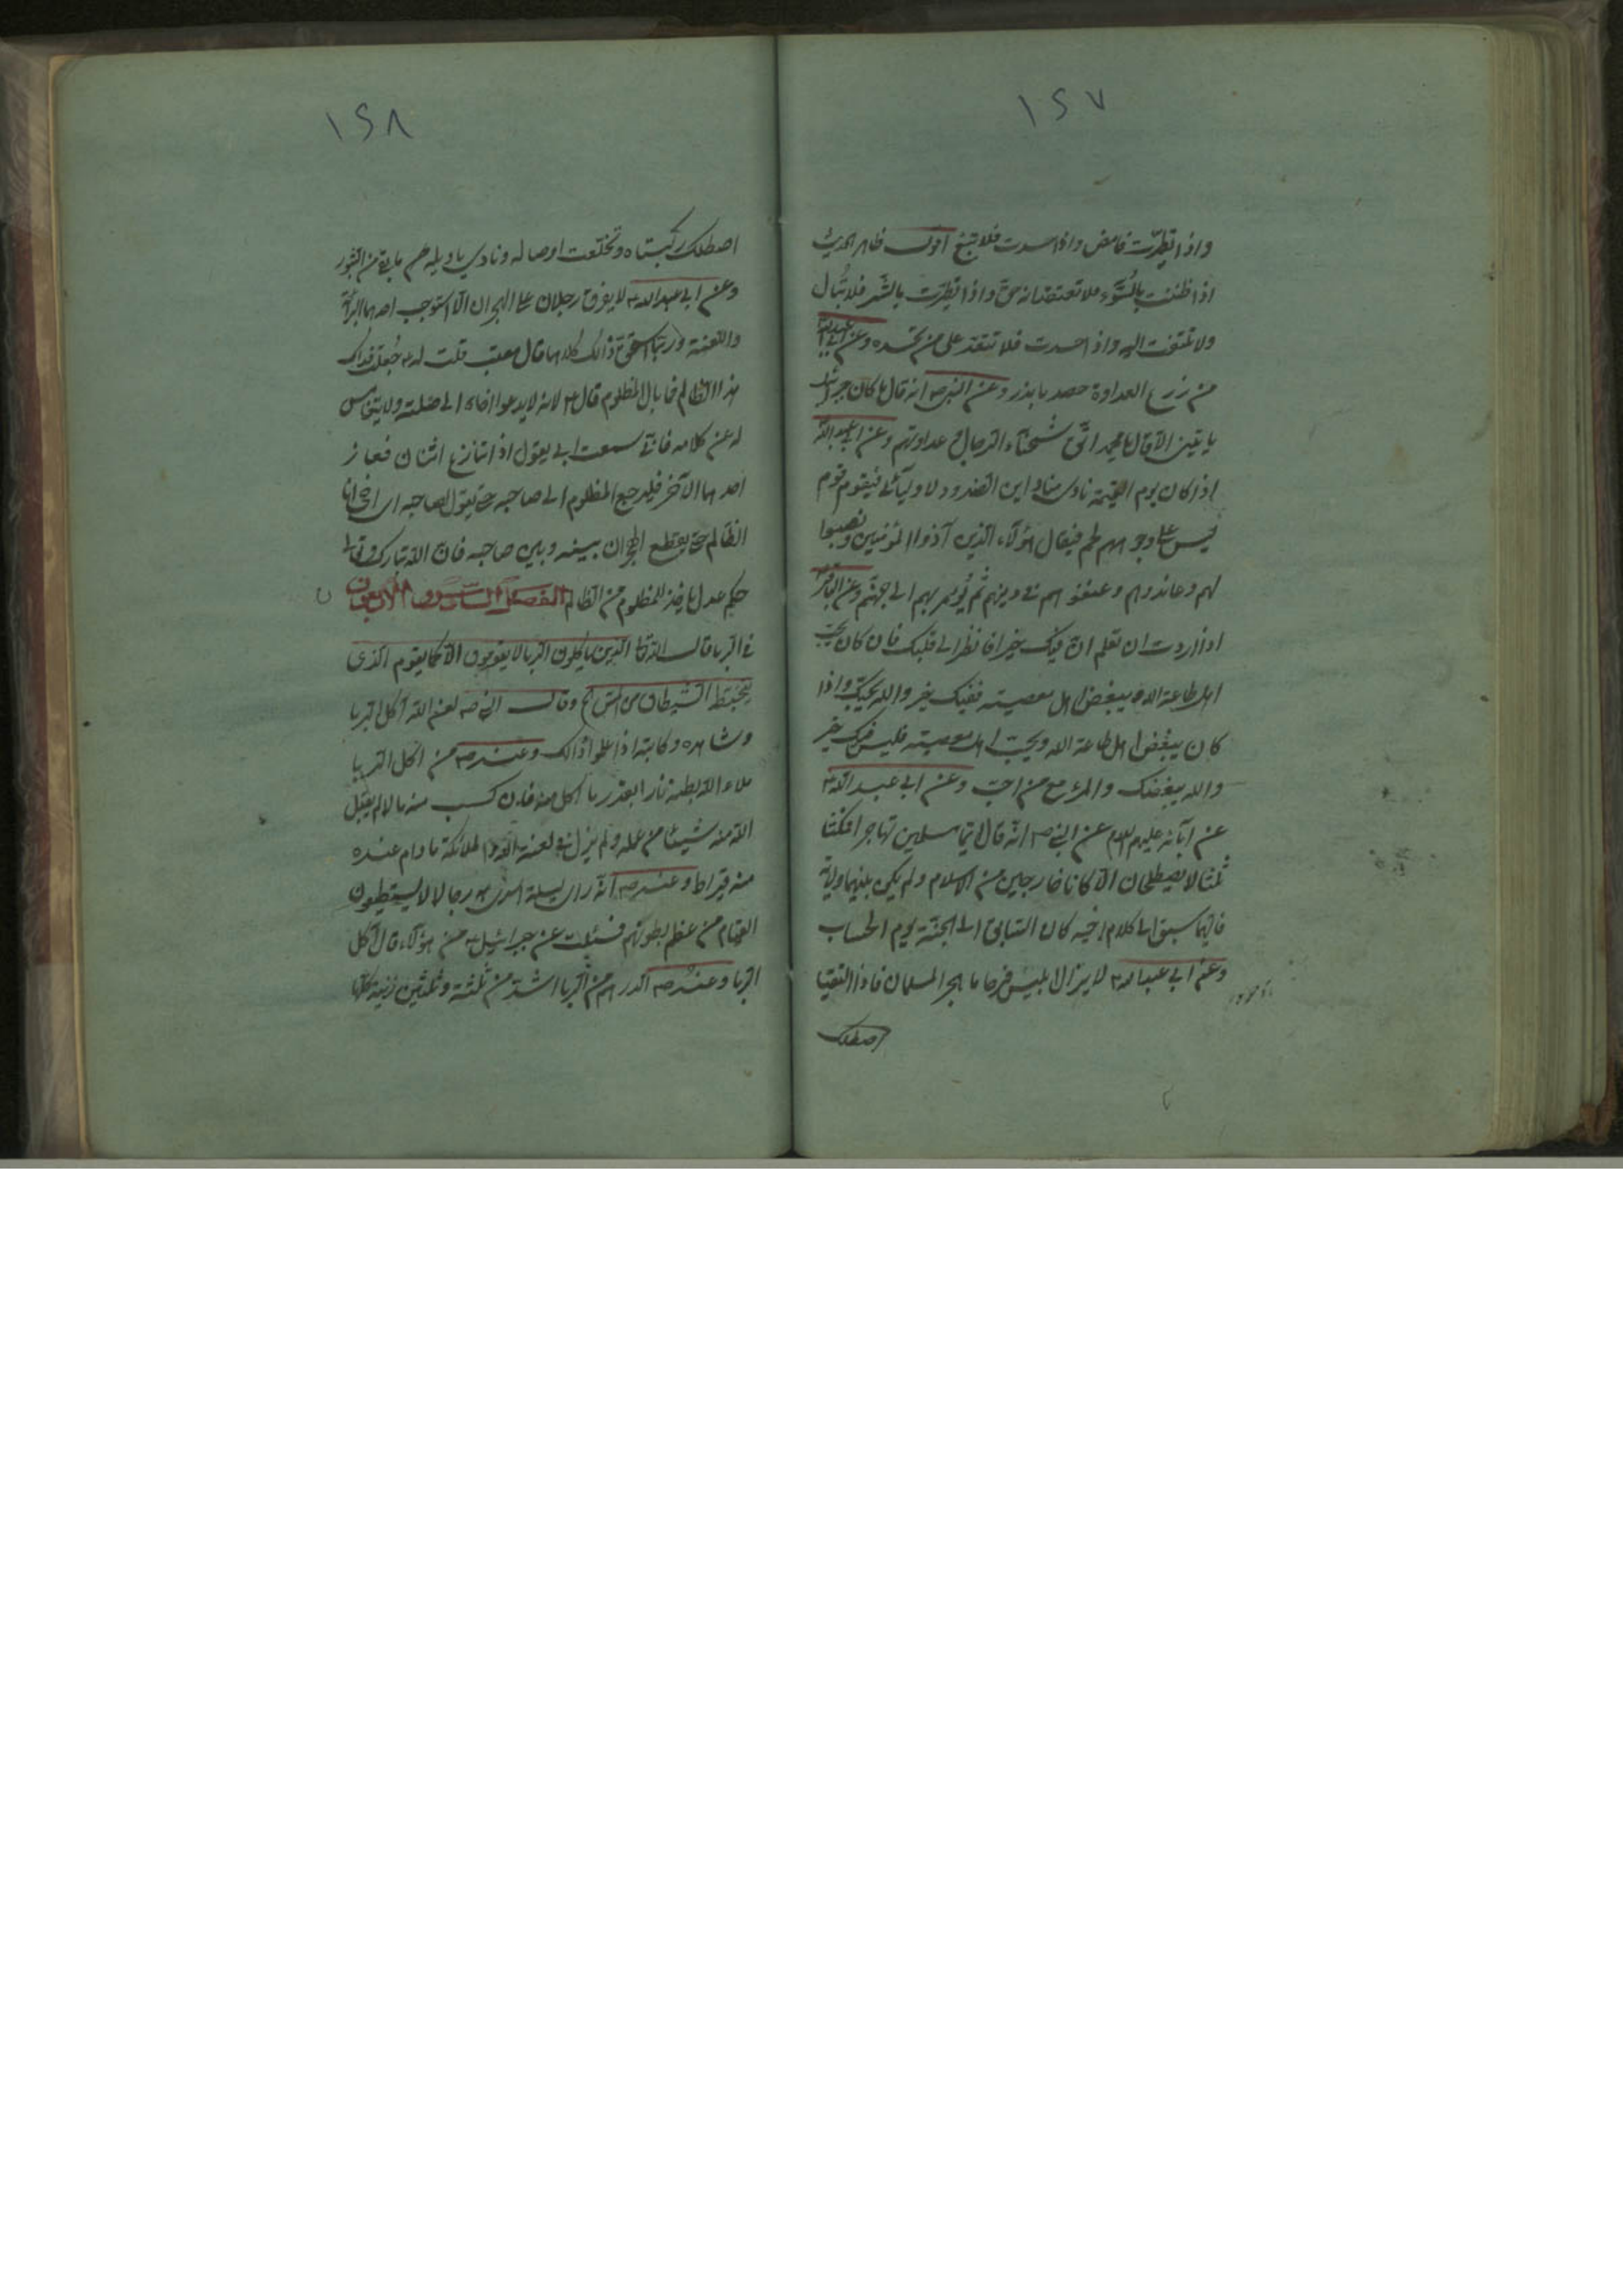 ١٤٧
واذا تطيّرت فامض واذا حسدت فلا تبغ اقول ظاهر الحديث
اذا ظننت بالسّوء فلا تعتقد انه حقّ واذا تطيّرت بالشّر فلا تبال
ولا تلتفت اليه واذا حسدت فلا تتعد على من تحسده وعن ابي عبد الله
من زرع العداوة حصد ما بذر وعن النبي ص انه قال ما كان جبرئيل
ياتيني الّا قال يا محمد اتّق شحنآء الرجال وعداوتهم وعن ابي عبد الله
اذا كان يوم القيمة نادى مناد اين الصدود لاوليائي فيقوم قوم
ليس على وجوههم لحم فيقال هؤلاء الذين آذوا المؤمنين ونصبوا
لهم وعاندوهم وعنفوهم في دينهم ثم يؤمر بهم الى جهنم وعن الباقر
اذا اردت ان تعلم انّ فيك خيرا فانظر الى قلبك فان كان يحبّ
اهل طاعة الله ويبغض اهل معصيته ففيك خير والله يحبّك واذا
كان يبغض اهل طاعة الله ويحبّ اهل معصيته فليس فيك خير
والله يبغضك والمرء مع من احبّ وعن ابي عبد الله ع
عن آبائه عليهم السلام عن النبي ص انّه قال ايّما مسلمين تهاجرا فمكثا
ثلثا لا يصطلحان الّا كانا خارجين من الاسلام ولم يكن بينهما ولاية
فايّهما سبق الى كلام اخيه كان السّابق الى الجنّة يوم الحساب
وعن ابي عبد الله ع لا يزال ابليس فرحا ما اهجر المسلمان فاذا التقيا
اصطلك
١٤٨
اصطلك ركبتاه وتخلّعت اوصاله ونادى يا ويله من الثبور
وعن ابي عبد الله ع لا يفترق رجلان على الهجران الّا استوجب احدهما البرائة
واللعنة وربّما استحقّ ذالك كلاهما قال معتب قلت له ع جُعلت فداك
هذا الظالم فما بال المظلوم قال ع لانه لا يدعوا اخاه الى صلته ولا يتغامس
له عن كلامه فانّي سمعت ابي يقول اذا تنازع اثنان فعاز
احدهما الآخر فليرجع المظلوم الى صاحبه حتّى يقول لصاحبه اي اخي انا
الظالم حتّى يقطع الهجران بينه وبين صاحبه فانّ الله تبارك وتعالى
حكم عدل ياخذ للمظلوم من الظالم الفصل السّادس والاربعون
في الربا قال الله تعالى الذين ياكلون الربا لا يقومون الّا كما يقوم الذي
يتخبّطه الشيطان من المسّ وقال النبي ص لعن الله آكل الربا
وشاهده وكاتبه اذا علموا ذالك وعنه ص من اكل الربا
ملاء الله بطنه نارا بقدر ما اكل منه فان كسب منه مالا لم يقبل
الله منه شيئا من عمله ولم يزل في لعنة الله والملائكة ما دام عنده
منه قيراط وعنه ص انّه راى ليلة اسرى به رجالا لا يستطيعون
القيام من عظم بطونهم فسئلت عن جبرائيل من هؤلاء قال آكل
الربا وعنه ص الدرهم من الربا اشدّ من ثلثة وثلثين زنية كلها